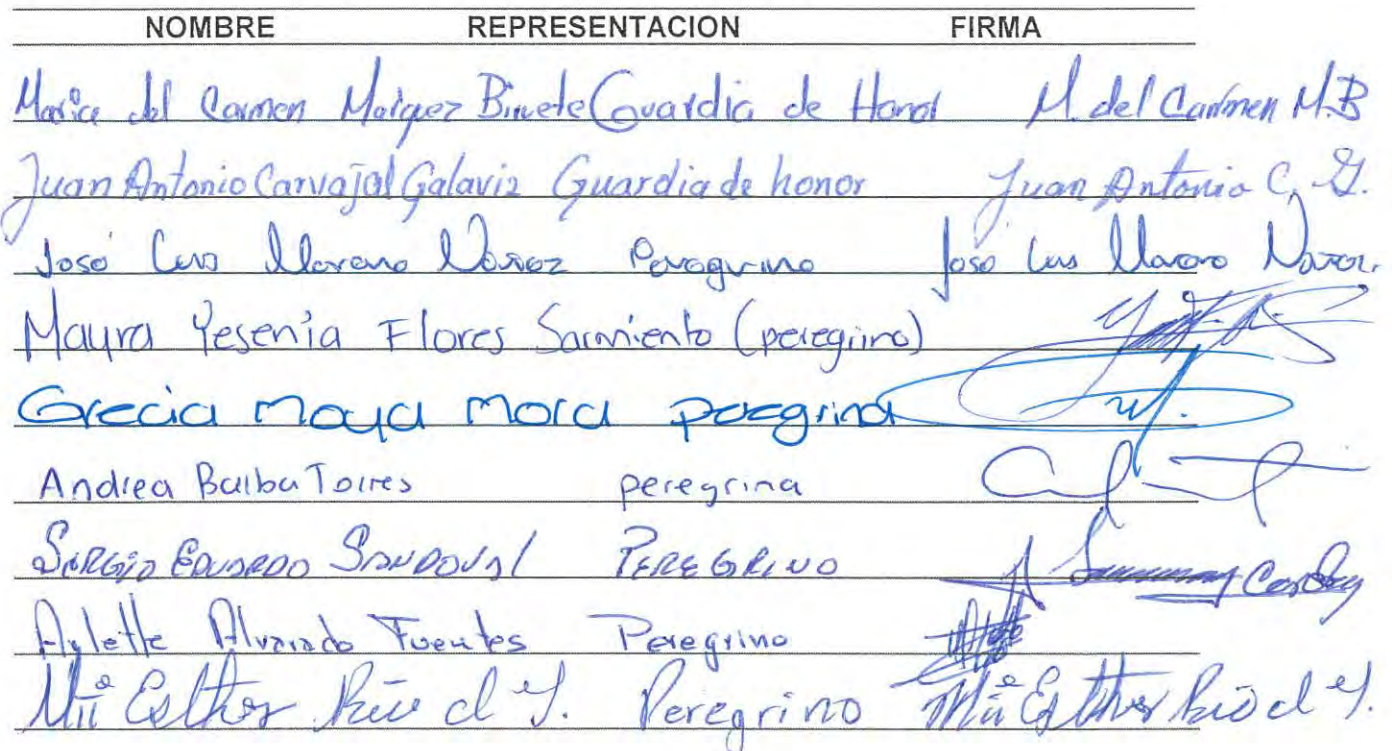 NOMBRE REPRESENTACION FIRMA
Maria del Carmen Marquez Guardia de Honor M. del Carmen M.B
Juan Antonio Carvajal Galaviz Guardia de honor Juan Antonio C. G.
José Luis Moreno Peregrino José Luis Moreno
Mayra Yesenia Flores Sarmiento (peregrino)
Grecia Moya Mora peregrina
Andrea Balba Torres peregrina
SERGIO EDUARDO SANDOVAL PEREGRINO
Aylette Alvarado Fuentes Peregrino
Ma Esther Peregrino Ma Esther